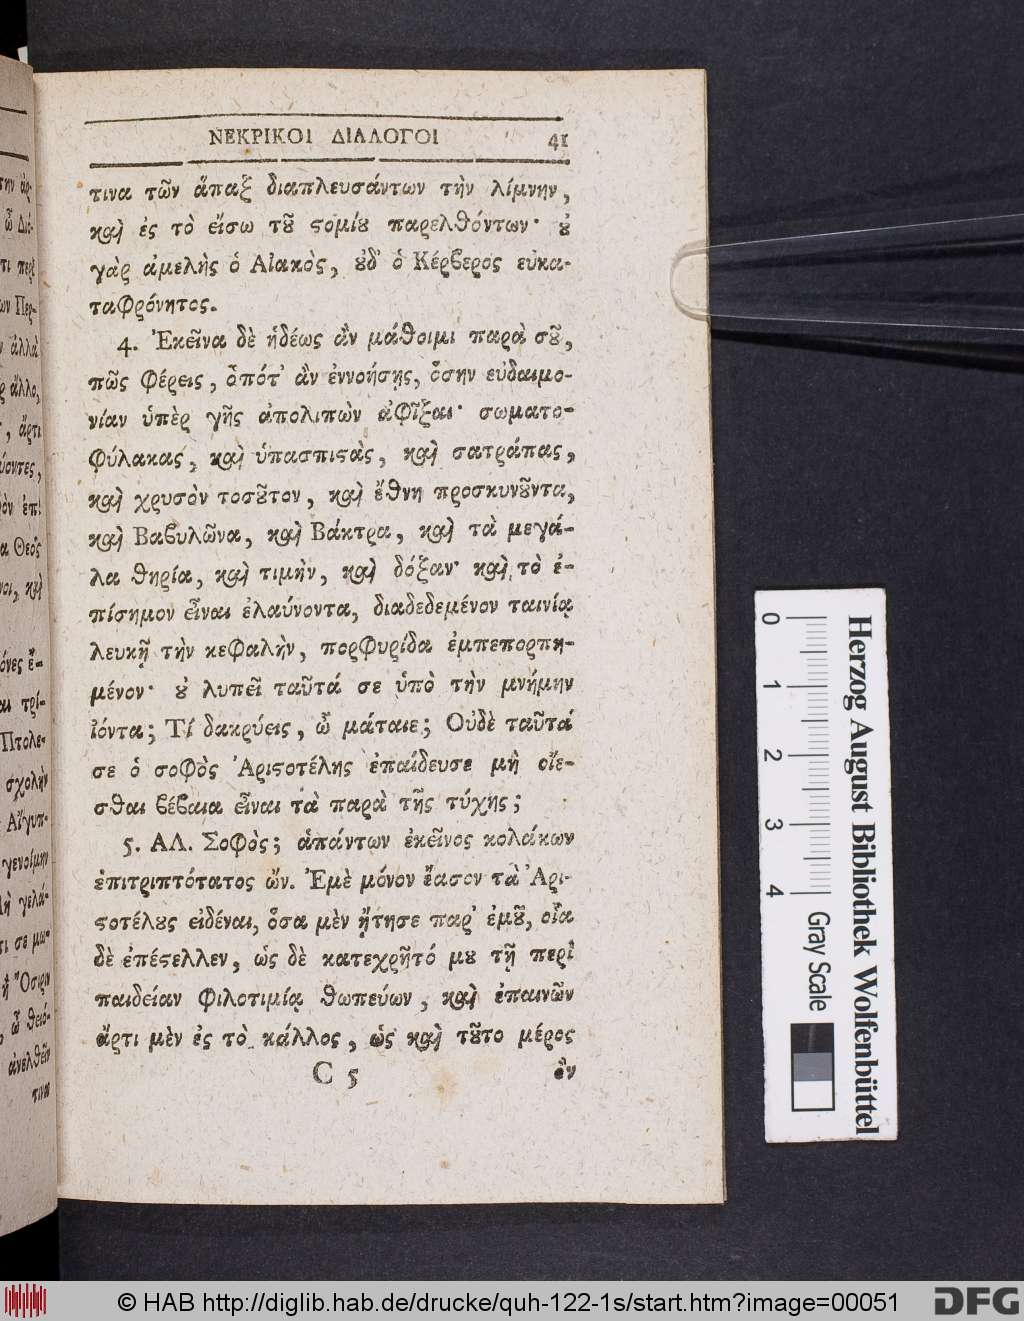 ΝΕΚΡΙΚΟΙ ΔΙΑΛΟΓΟΙ 41
τινα τῶν ἅπαξ διαπλευσάντων τὴν λίμνην,
καὶ ἐς τὸ εἴσω τȣ͂ ϛομίȣ παρελθόντων· ȣ̓
γὰρ ἀμελὴς ὁ Αἰακὸς, ȣ̓δ' ὁ Κέρϐερος εὐκα-
ταφρόνητος.
4. Ἐκεῖνα δὲ ἡδέως ἂν μάθοιμι παρὰ σȣ͂,
πῶς φέρεις, ὁπότ' ἂν ἐννοήσῃς, ὅσην εὐδαιμο-
νίαν ὑπὲρ γῆς ἀπολιπὼν ἀφῖξαι· σωματο-
φύλακας, καὶ ὑπασπιϛὰς, καὶ σατράπας,
καὶ χρυσὸν τοσȣ͂τον, καὶ ἔθνη προσκυνȣ͂ντα,
καὶ Βαϐυλῶνα, καὶ Βάκτρα, καὶ τὰ μεγά-
λα θηρία, καὶ τιμὴν, καὶ δόξαν· καὶ τὸ ἐ-
πίσημον εἶναι ἐλαύνοντα, διαδεδεμένον ταινίᾳ
λευκῇ τὴν κεφαλὴν, πορφυρίδα ἐμπεπορπη-
μένον· ȣ̓ λυπεῖ ταῦτά σε ὑπὸ τὴν μνήμην
ἰόντα; Τί δακρύεις, ὦ μάταιε; Οὐδὲ ταῦτά
σε ὁ σοφὸς Ἀριϛοτέλης ἐπαίδευσε μὴ οἴε-
σθαι ϐέϐαια εἶναι τὰ παρὰ τῆς τύχης;
5. ΑΛ. Σοφὸς; ἁπάντων ἐκεῖνος κολάκων
ἐπιτριπτότατος ὤν. Ἐμὲ μόνον ἔασον τὰ Ἀρι-
ϛοτέλȣς εἰδέναι, ὅσα μὲν ᾔτησε παρ' ἐμȣ͂, οἷα
δὲ ἐπέϛελλεν, ὡς δὲ κατεχρῆτό μȣ τῇ περὶ
παιδείαν φιλοτιμίᾳ θωπεύων, καὶ ἐπαινῶν
ἄρτι μὲν ἐς τὸ κάλλος, ὡς καὶ τȣ͂το μέρος
C 5 ὂν
Herzog August Bibliothek Wolfenbüttel
0 1 2 3 4 Gray Scale
© HAB http://diglib.hab.de/drucke/quh-122-1s/start.htm?image=00051
DFG